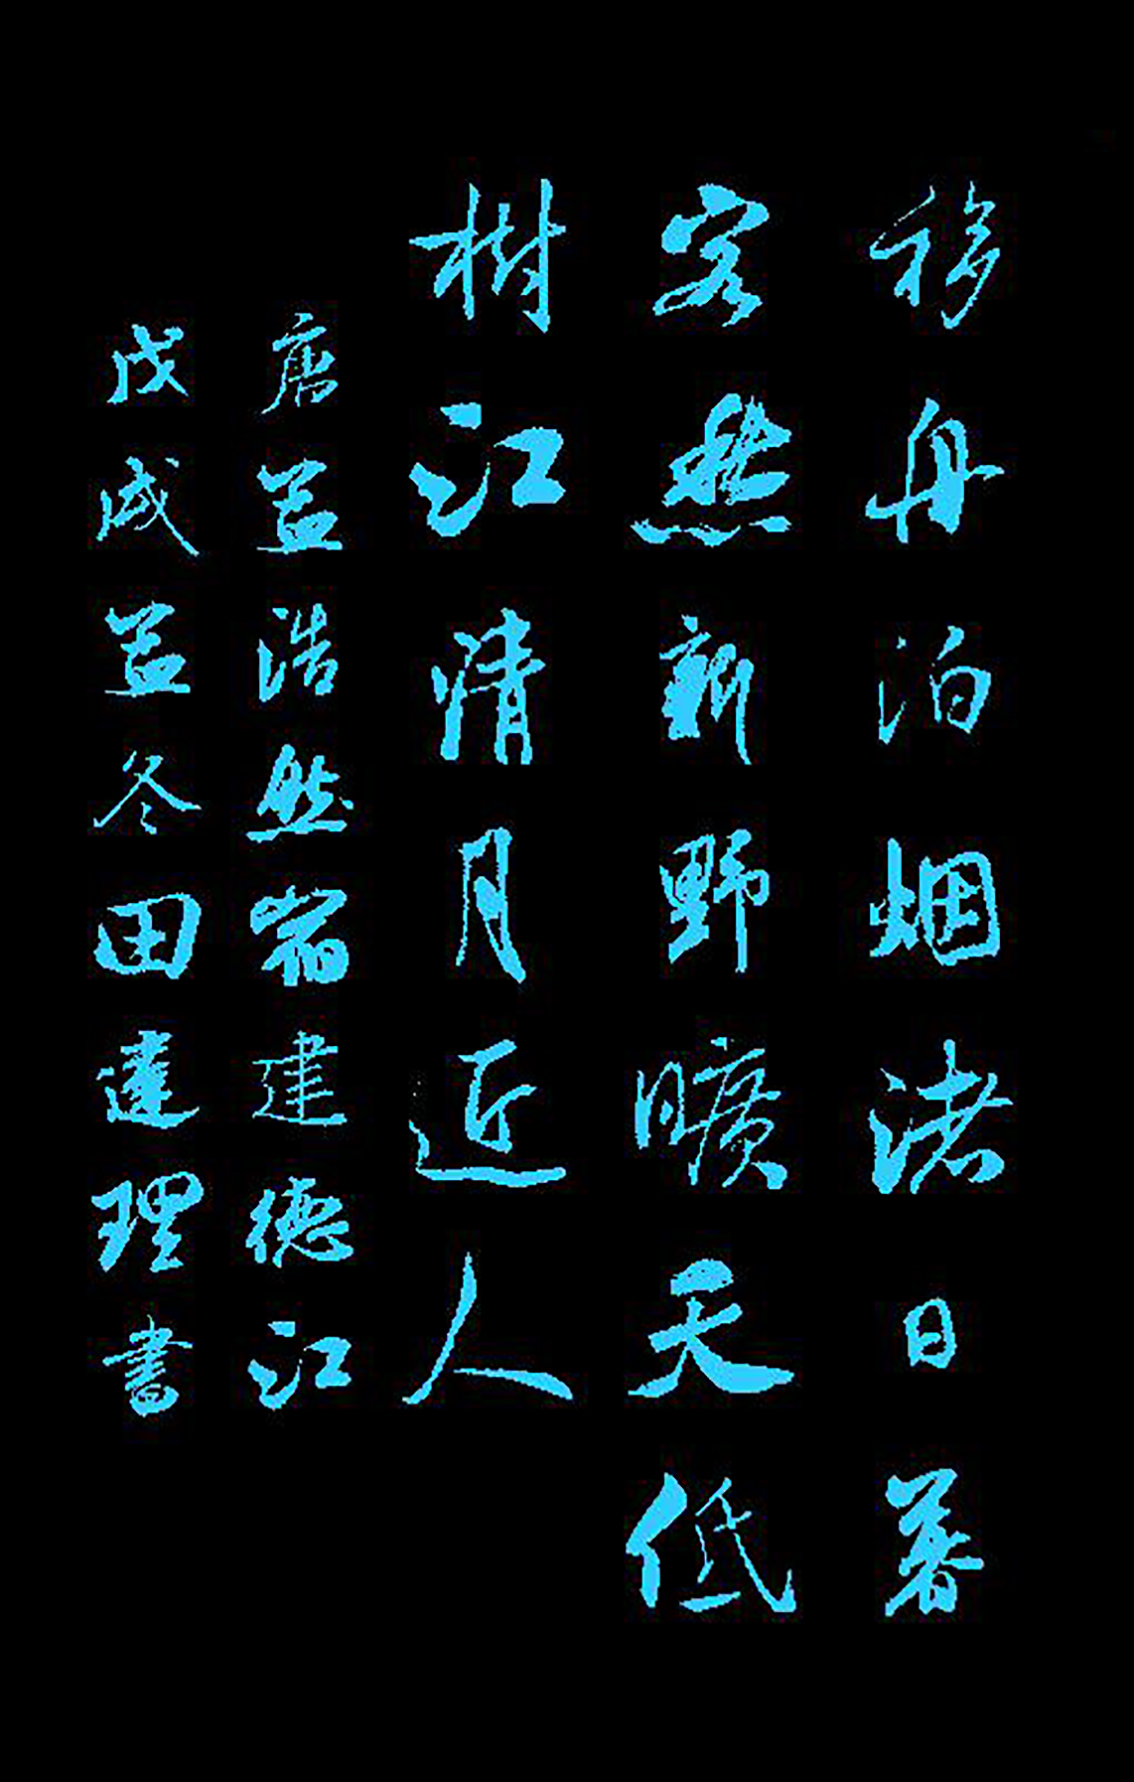 移舟泊烟渚日暮
客愁新野曠天低
樹江清月近人
唐孟浩然宿建德江
戊戌孟冬田達理書